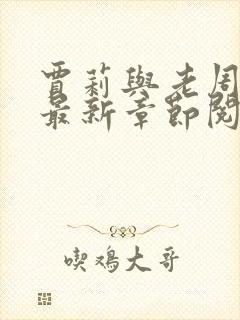 賈莉與老周
最新章節閱
喫鸡大哥